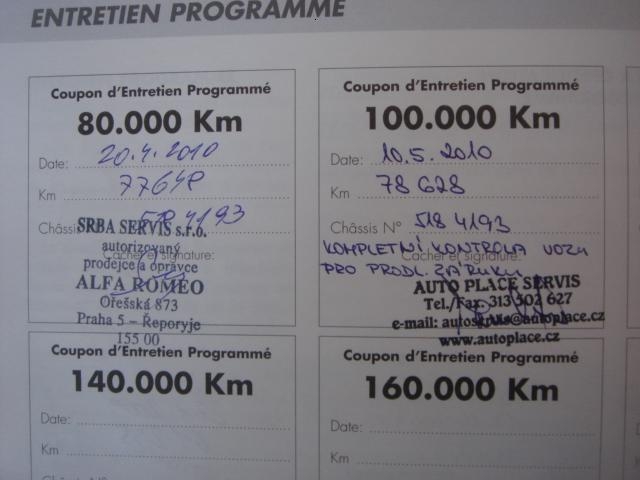 ENTRETIEN PROGRAMMÉ
Coupon d'Entretien Programmé
80.000 Km
Date: 20.4.2010
Km 77648
Châssis 5184193
SRBA SERVIS s.r.o.
Cachet et signature:
autorizovaný
prodejce a opravce
ALFA ROMEO
Ořešská 873
Praha 5 – Řeporyje
155 00
Coupon d'Entretien Programmé
100.000 Km
Date: 10.5.2010
Km 78 628
Châssis N° 518 4193
KOMPLETNÍ KONTROLA VOZU
Cachet et signature:
PRO PRODL. ZÁRUKU
AUTO PLACE SERVIS
Tel./Fax. 313 502 627
e-mail: autoservis@autoplace.cz
www.autoplace.cz
Coupon d'Entretien Programmé
140.000 Km
Date:
Km
Coupon d'Entretien Programmé
160.000 Km
Date:
Km